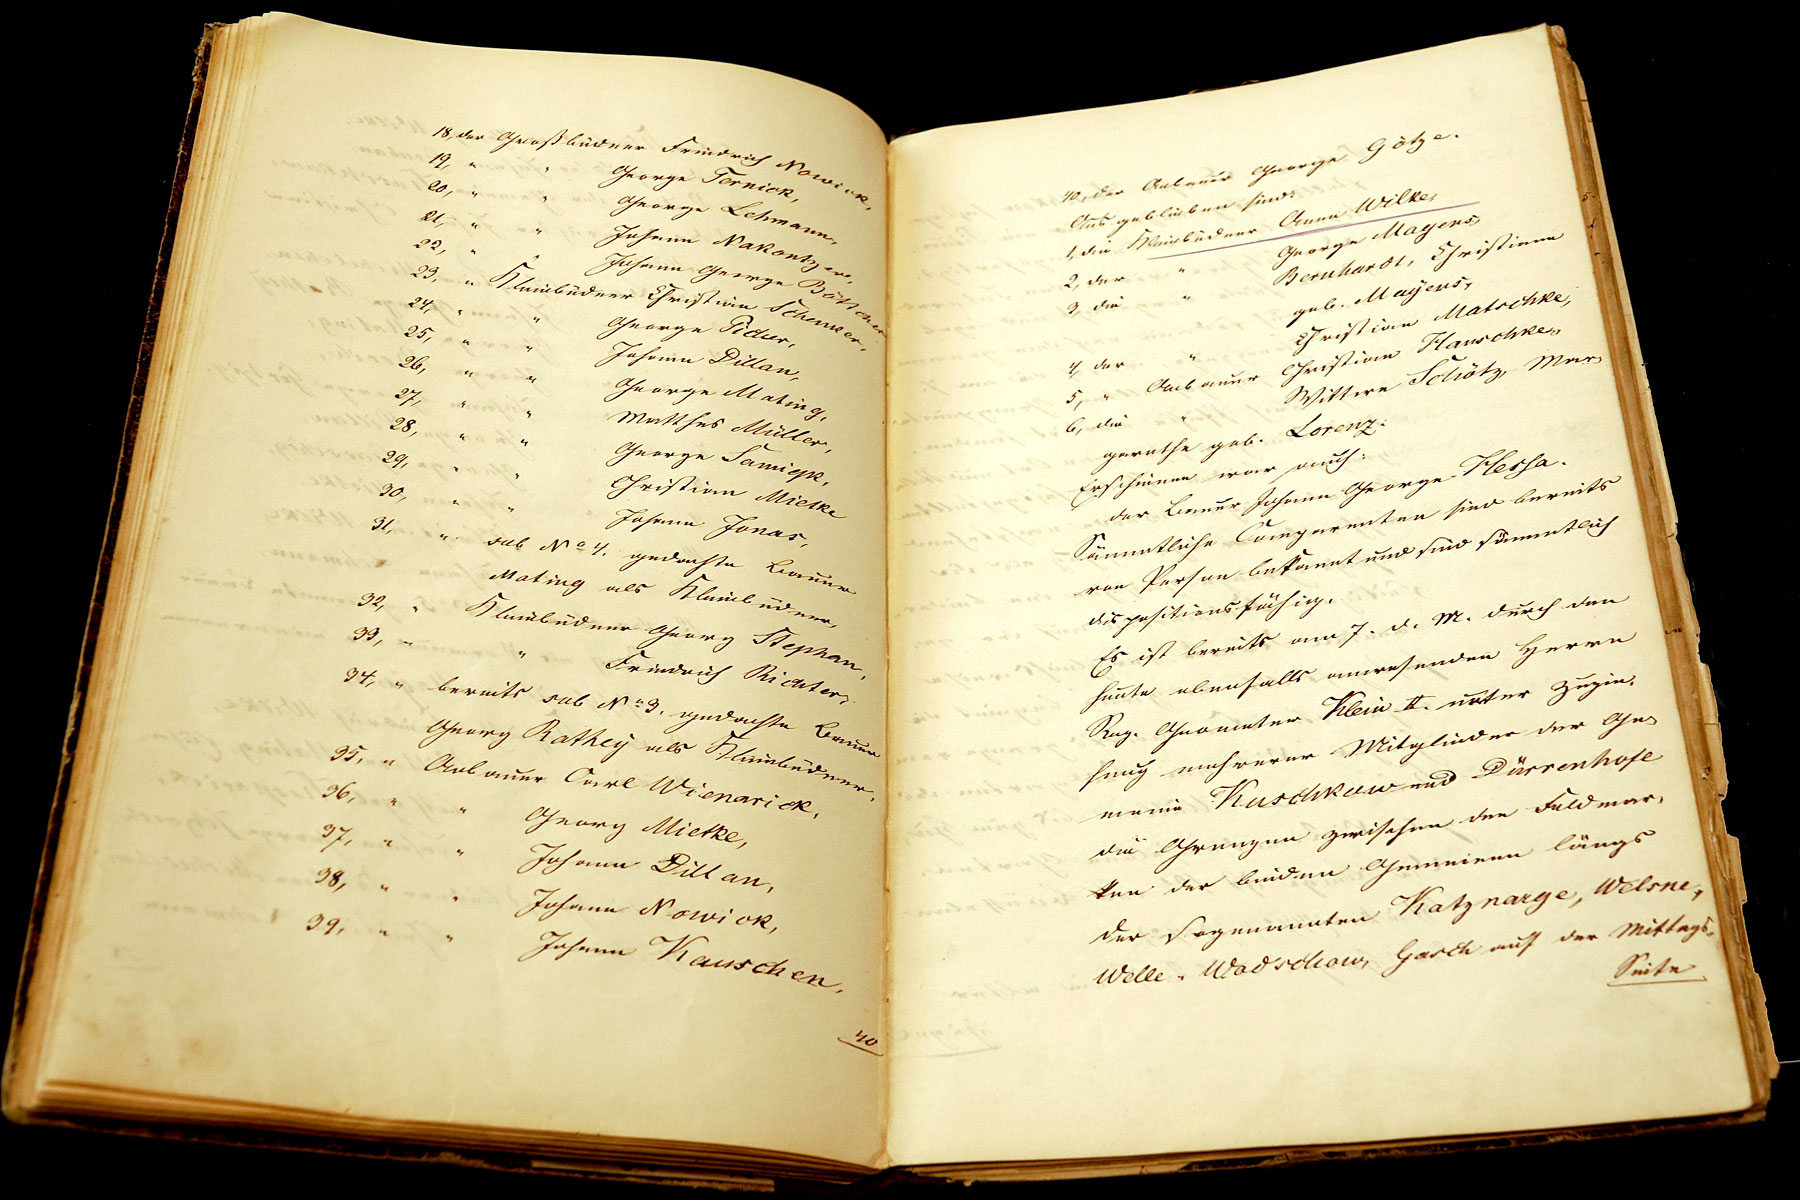 18, der Großbüdner Friedrich Nowick,
19, " " George Ternick,
20, " " George Lehmann,
21, " " Johann Nakontzer,
22, " " Johann George Böttcher
23, " Kleinbüdner Christian Schenker,
24, " " George Pidur,
25, " " Johann Dillan,
26, " " George Mating,
27, " " Matthes Müller,
28, " " George Samigk,
29, " " Christian Mietke
30, " " Johann Jonas,
31, " sub No 4. gedachte Bauer
Mating als Kleinbüdner,
32, " Kleinbüdner Georg Stephan,
33, " " Friedrich Richter,
34, " bereits sub No 3. gedachte Bauer
Georg Rathey als Kleinbüdner,
35, " Anbauer Carl Wienarick,
36, " " Georg Mietke,
37, " " Johann Dillan,
38, " " Johann Nowick,
39, " " Johann Kauschen,
40
40, der Anbauer George Götze.
Ausgeblieben sind:
1, die Kleinbüdner Anna Wilke,
2, der " George Mayens,
3, die " Bernhardt, Christiane
geb. Mayens,
4, der " Christian Matschke,
5, " Anbauer Christian Hanschke,
6, die " Wittwe Schötz, Mar-
garethe geb. Lorenz.
Erschienen war auch:
der Bauer Johann George Hescha.
Sämmtliche Comparenten sind bereits
von Person bekannt und sind sämmtlich
dispositionsfähig.
Es ist bereits am 7. d. M. durch den
heute ebenfalls anwesenden Herrn
Reg. Geometer Klein II. unter Zuzie-
hung mehrerer Mitglieder der Ge-
meine Kuschkow und Dürrenhofe
die Grenzen zwischen den Feldmar-
ken der beiden Gemeinen längs
der sogenannten Katznarge, Welsne,
Welle, Wodschow, Gasch auf der Mittags-
Seite